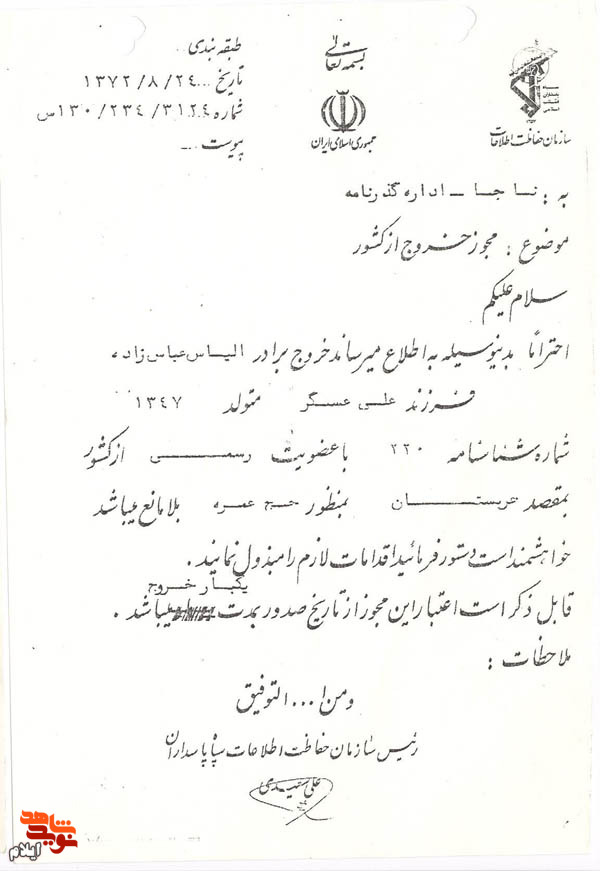 بسمه تعالی
جمهوری اسلامی ایران
سازمان حفاظت اطلاعات
طبقه بندی
تاریخ ... ۱۳۷۲/۸/۲۴
شماره ۱۳۰/۲۳۴/۳۱۲۴س
پیوست ...
به : ناجا - اداره گذرنامه
موضوع : مجوز خروج از کشور
سلام علیکم
احتراماً بدینوسیله به اطلاع میرساند خروج برادر الیاس عباس زاده
فرزند علی عسگر متولد ۱۳۴۷
شماره شناسنامه ۲۲۰ با عضویت رسمی از کشور
بمقصد عربستان بمنظور حج عمره بلامانع میباشد
خواهشمند است دستور فرمائید اقدامات لازم را مبذول نمایند .
یکبار خروج
قابل ذکر است اعتبار این مجوز از تاریخ صدور بمدت میباشد .
ملاحظات :
و من ا... التوفیق
رئیس سازمان حفاظت اطلاعات سپاه پاسداران
علی سعیدی
نوید شاهد
ایلام